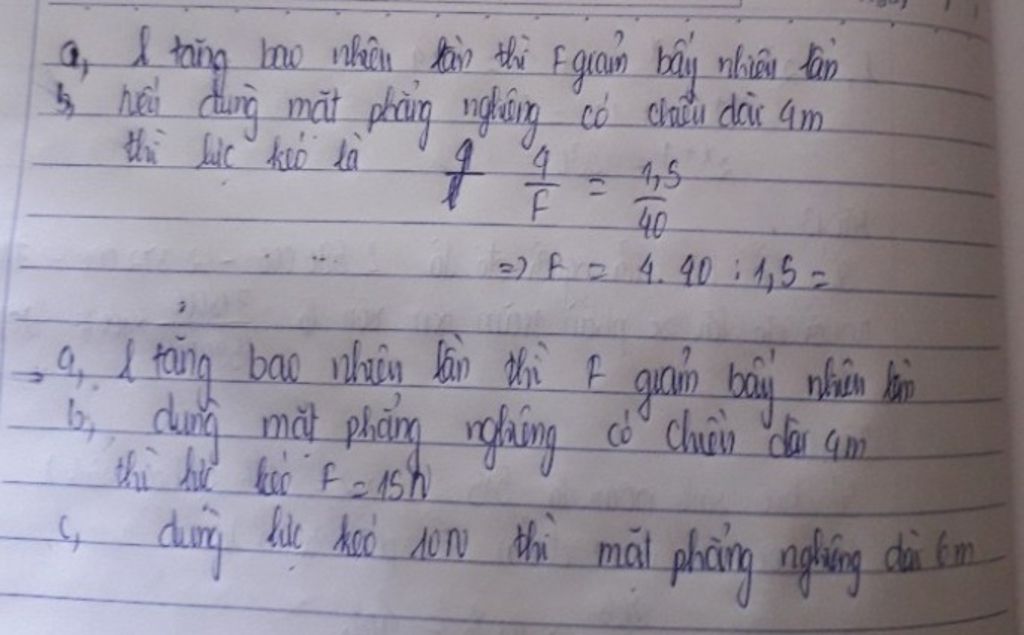 a, l tăng bao nhiêu lần thì F giảm bấy nhiêu lần
b, nếu dùng mặt phẳng nghiêng có chiều dài 4m
thì lực kéo là 4/F = 1,5/40
=> F = 4.40 : 1,5 =
a, l tăng bao nhiêu lần thì F giảm bấy nhiêu lần
b, dùng mặt phẳng nghiêng có chiều dài 4m
thì lực kéo F = 15N
c, dùng lực kéo 10N thì mặt phẳng nghiêng dài 6m